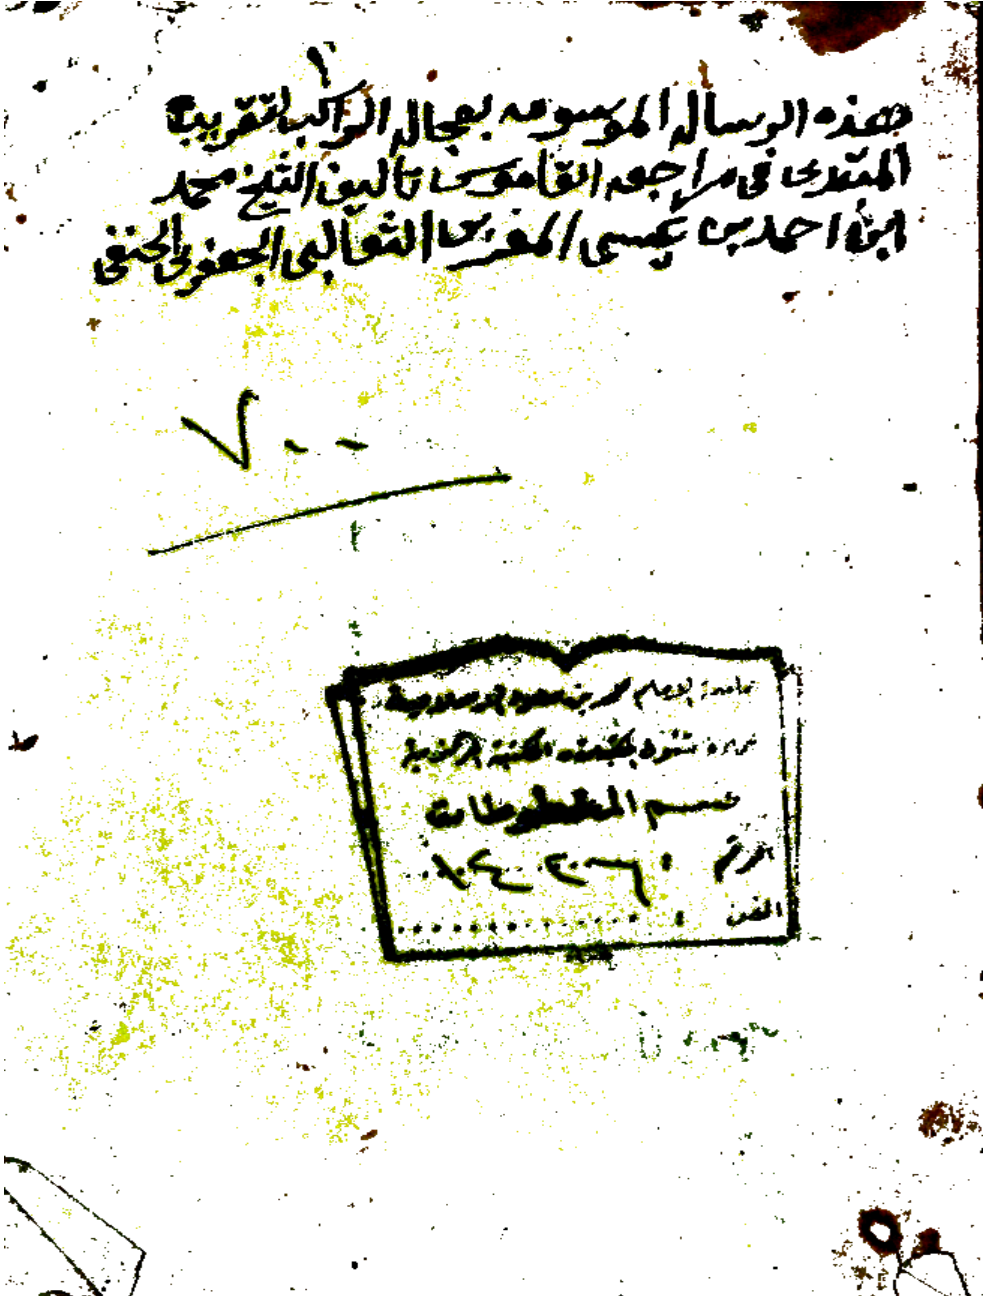 ١
هذه الرساله الموسومه بعجاله الراكب لتقريب
المبتدى فى مراجعه القاموس تاليف الشيخ محمد
ابن احمد بن عيسى المغربى الثعالبى الجعفرى الحنفى
٧٠٠
جامعة الإمام محمد بن سعود الإسلامية
عمادة شئون المكتبات المكتبة المركزية
قسم المخطوطات
الرقم :
الفن :